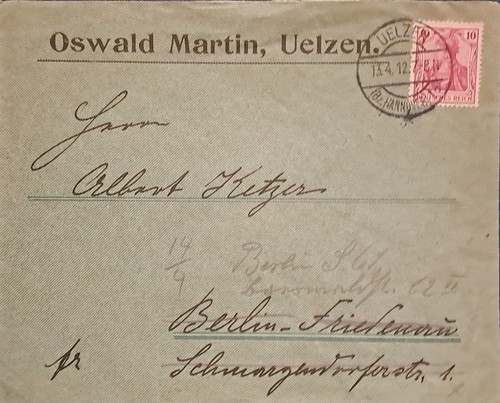 Oswald Martin, Uelzen.
UELZEN
13.4.12.7-8.N
(Bz. HANNOVER)
10
DEUTSCHES REICH
Herrn
Albert Ketzer
14
4
Berlin S. 61
62 II
Berlin-Friedenau
fr Schmargendorferstr. 1.